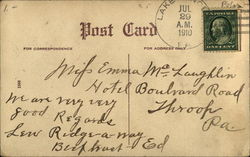 Post Card
FOR CORRESPONDENCE
FOR ADDRESS ONLY
LAKE
JUL
29
A.M.
1910
Miss Emma McLaughlin
Hotel Boulvard Road
Throop
Pa.
We are very very
Good Regards
Lew Ridge-a-way
Ed